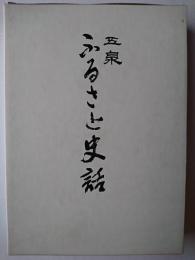 五泉
ふるさと史話